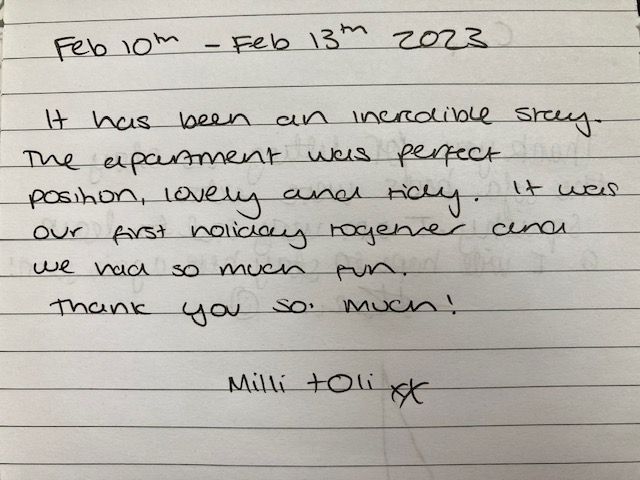 Feb 10th - Feb 13th 2023
It has been an incredible stay.
The apartment was perfect
position, lovely and tidy. It was
our first holiday together and
we had so much fun.
Thank you so much!
Milli + Oli xx